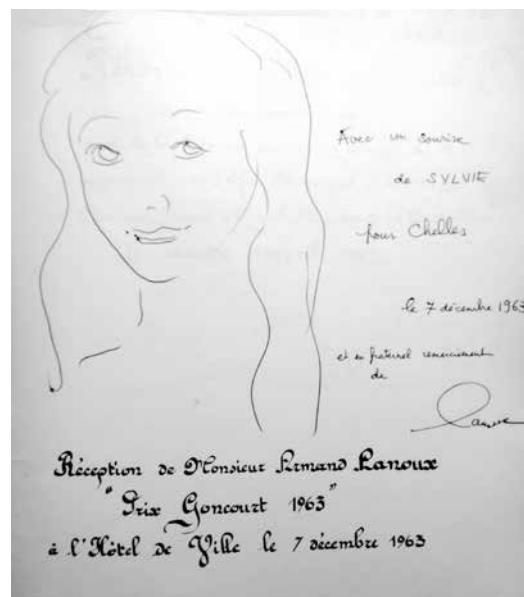 Avec un sourire
de SYLVIE
pour Chelles
le 7 décembre 1963
et en fraternel remerciement
de
Lanoux
Réception de Monsieur Armand Lanoux
"Prix Goncourt 1963"
à l'Hôtel de Ville le 7 décembre 1963